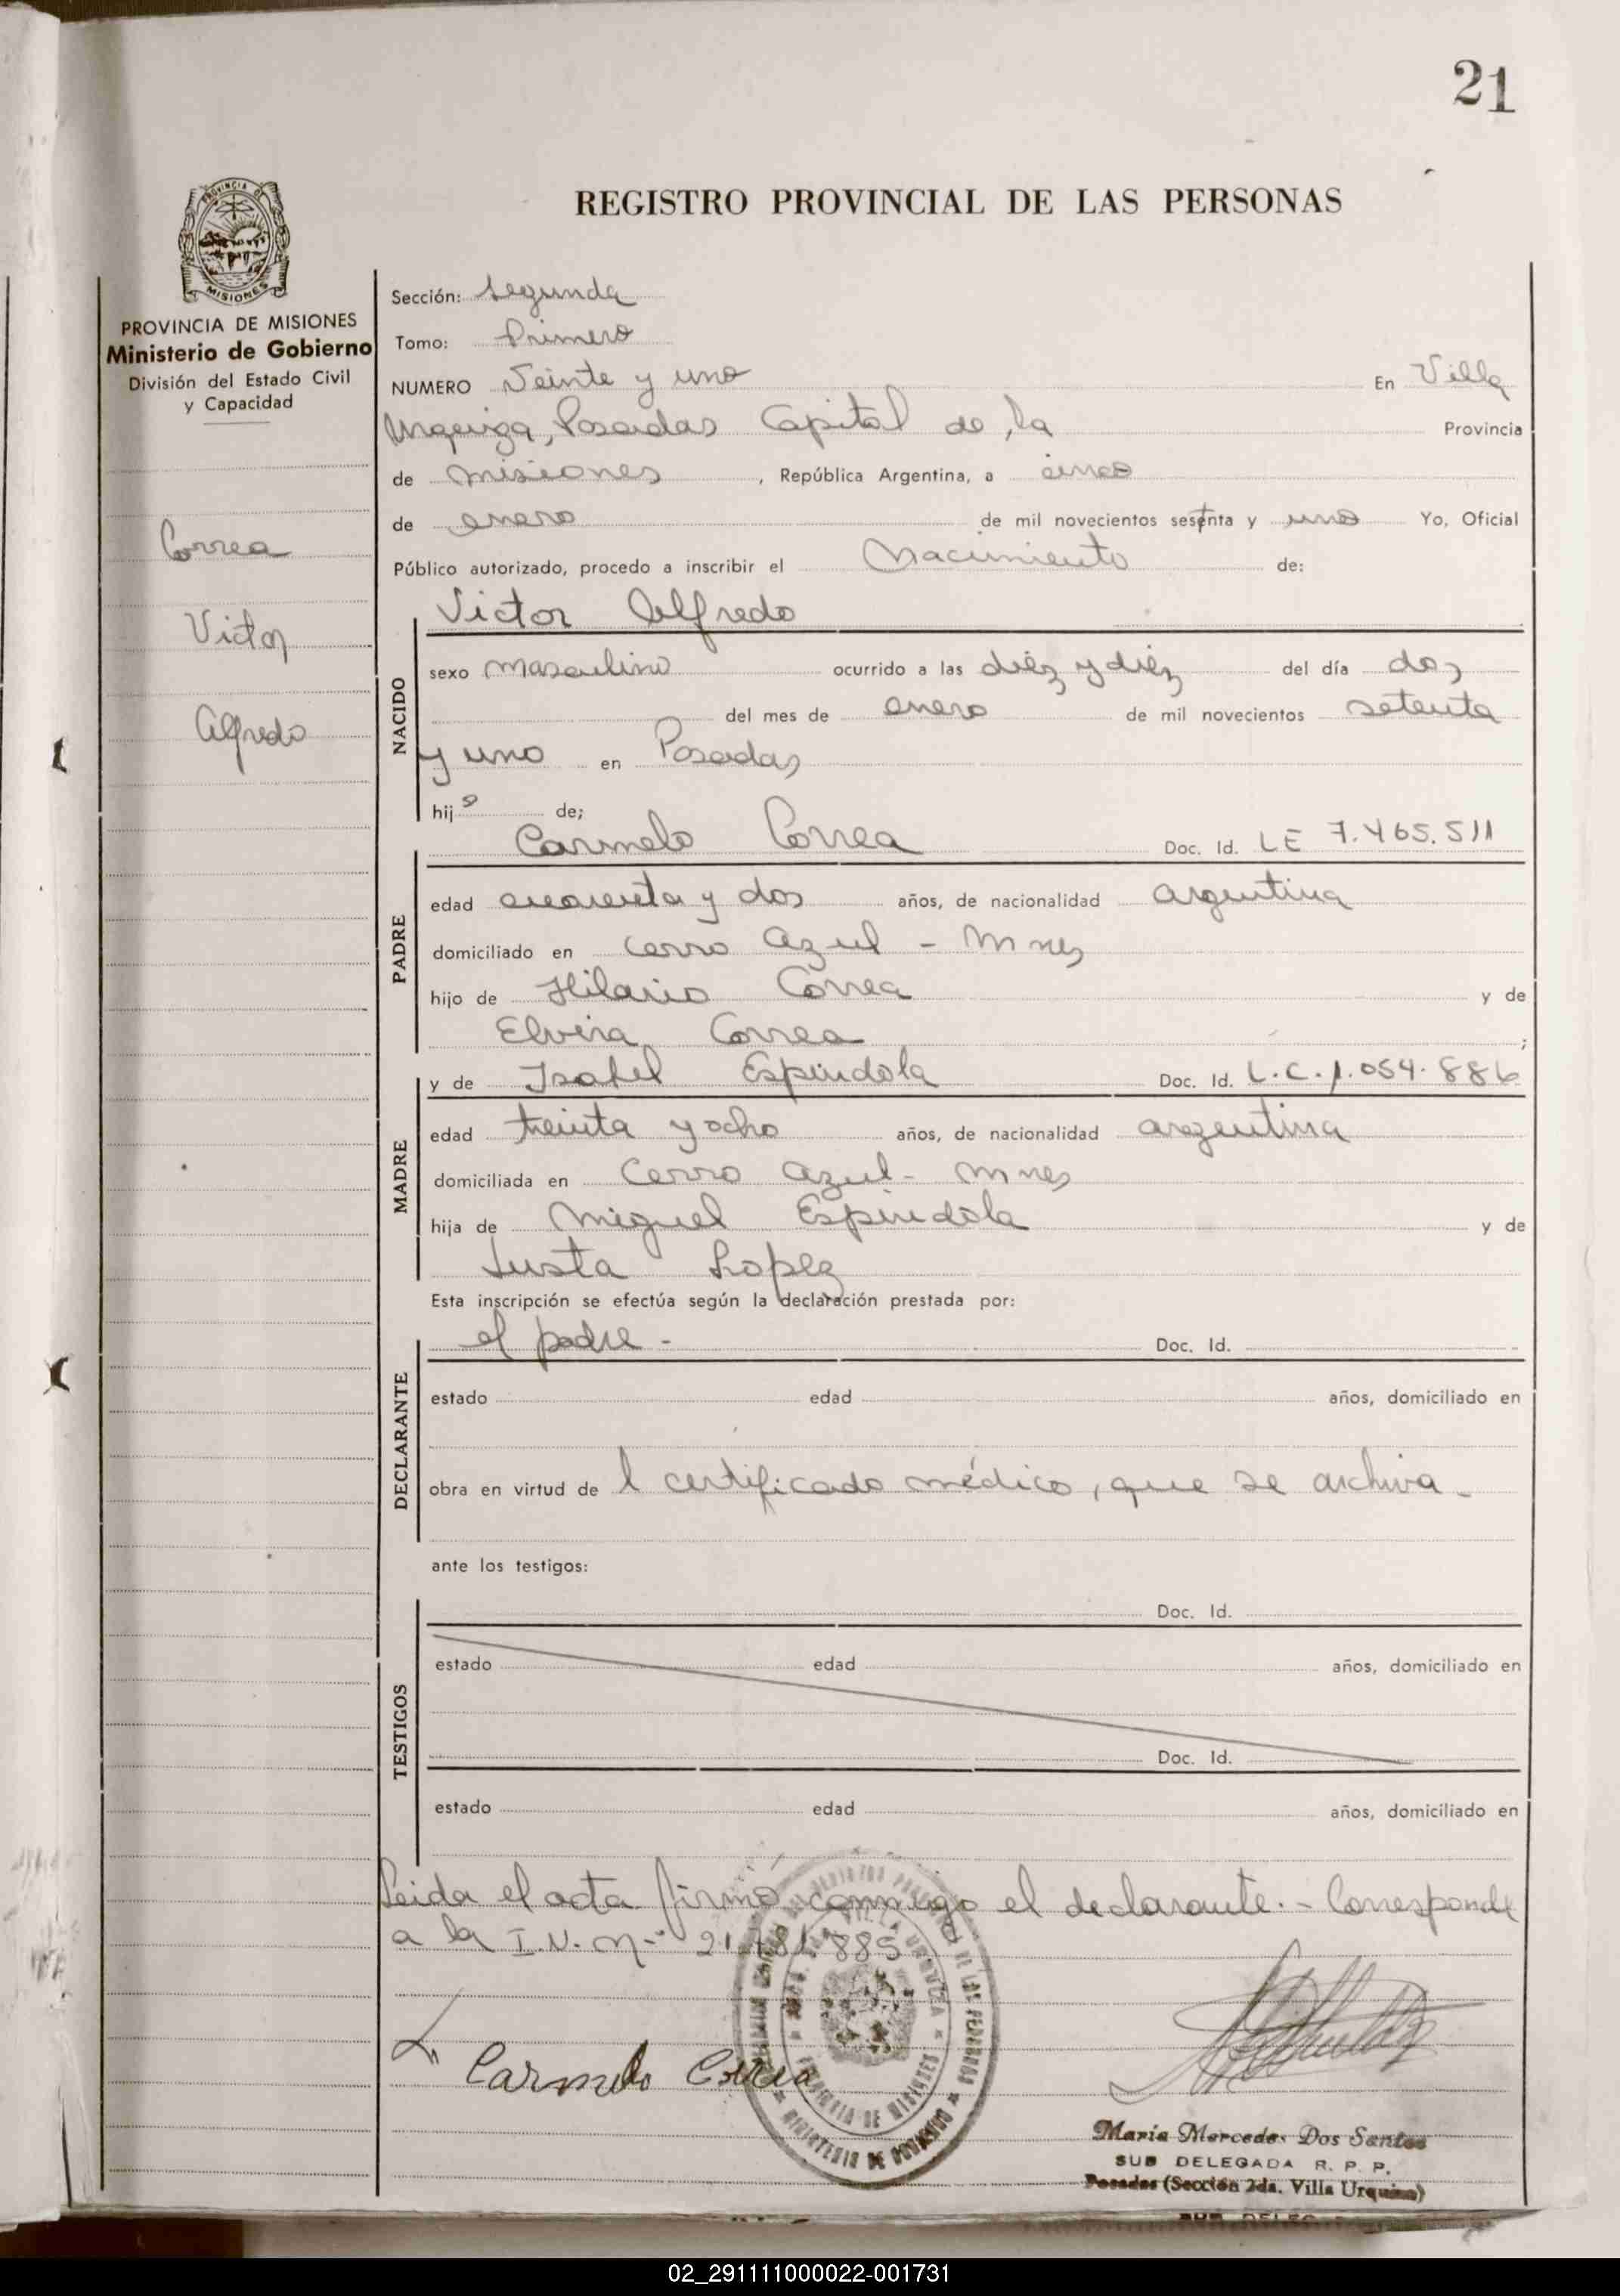 21
REGISTRO PROVINCIAL DE LAS PERSONAS
PROVINCIA DE MISIONES
Ministerio de Gobierno
División del Estado Civil
y Capacidad
Correa
Victor
Alfredo
Sección: Segunda
Tomo: Primero
NUMERO Veinte y uno En Villa
Urquiza, Posadas Capital de la Provincia
de Misiones, República Argentina, a cinco
de enero de mil novecientos sesenta y uno Yo, Oficial
Público autorizado, procedo a inscribir el Nacimiento de:
Victor Alfredo
NACIDO
sexo masculino ocurrido a las diéz y diéz del día dos
del mes de enero de mil novecientos setenta
y uno en Posadas
hijo de;
Carmelo Correa Doc. Id. LE 7.465.511
PADRE
edad cuarenta y dos años, de nacionalidad argentina
domiciliado en Cerro Azul - Mnes
hijo de Hilario Correa y de
Elvira Correa ;
y de Isabel Espindola Doc. Id. L.C. 1.054.886
MADRE
edad treinta y ocho años, de nacionalidad argentina
domiciliada en Cerro Azul - Mnes
hija de Miguel Espindola y de
Justa Lopez
Esta inscripción se efectúa según la declaración prestada por:
el padre - Doc. Id.
DECLARANTE
estado edad años, domiciliado en
obra en virtud de l certificado médico, que se archiva -
ante los testigos:
Doc. Id.
TESTIGOS
estado edad años, domiciliado en
Doc. Id.
estado edad años, domiciliado en
Leida el acta firmó conmigo el declarante. - Corresponde
a la I.N. Nº 21. 885
Carmelo Correa
MINISTERIO DE GOBIERNO
PROVINCIA DE MISIONES
Maria Mercedes Dos Santos
SUB DELEGADA R. P. P.
Posadas (Sección 2da. Villa Urquiza)
02_291111000022-001731